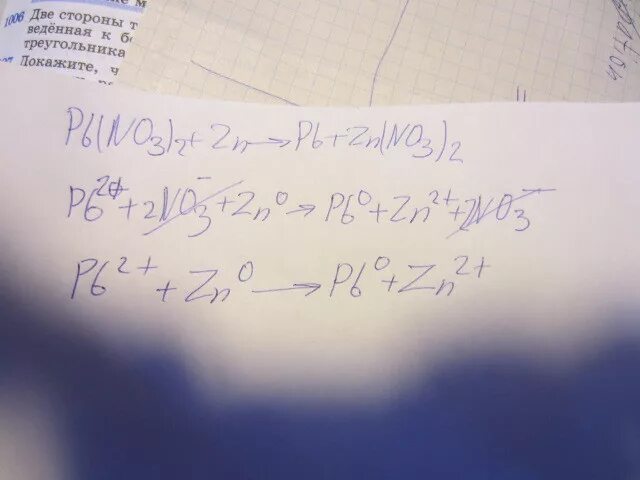 1006 Две стороны т
ведённая к б
треугольника
Покажите, ч
Pb(NO3)2 + Zn → Pb + Zn(NO3)2
Pb²⁺ + 2NO3⁻ + Zn⁰ → Pb⁰ + Zn²⁺ + 2NO3⁻
Pb²⁺ + Zn⁰ → Pb⁰ + Zn²⁺